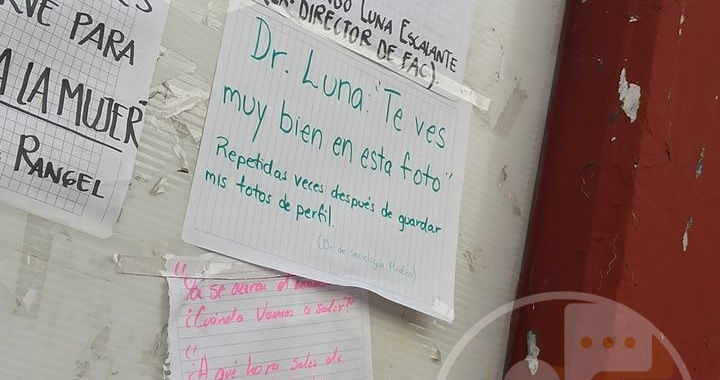 RVE PARA
A LA MUJER"
RANGEL
LUNA ESCALANTE
DIRECTOR DE FAC)
Dr. Luna: "Te ves
muy bien en esta foto"
Repetidas veces después de guardar
mis fotos de perfil.
(Dr. de Sociología Médica)
"Ya se
¿Cuándo Vamos a salir?"
"
¿A qué hora sales de